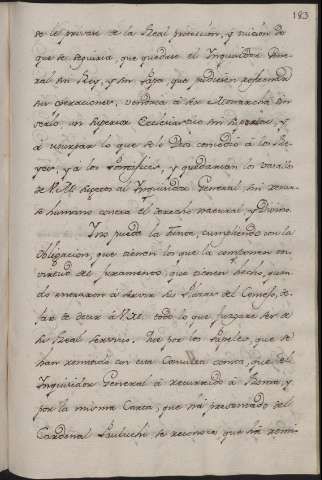 183
se le privase de la Real protección, y unición de
que se seguiria que quedase el Inquisidor Gene-
ral sin Rey, y sin Papa, que pudiesen reformar
sus operaciones, vendria à ser Monarcha sin
serlo, un superior Ecclesiastico sin
y à usurpar lo que solo Dios concediò à los Re-
yes, y à los Pontifices, y quedarian los vasallos
de V. M. sugetos al Inquisidor General sin recur-
so humano contra el derecho natural, y Divino.
Y no puede la Junta, cumpliendo con la
obligacion, que tienen los que la componen en
virtud del juramento, que tienen hecho, quan-
do entraron à servir sus Plazas del Consejo, de-
jar de decir à V. M. todo lo que juzgare ser de
su Real servicio. Que por los Papeles, que se
han remitido con esta Consulta consta, que el
Inquisidor General à recurrido à Roma, y
por la misma Carta, que hà presentado del
Cardenal Pauluchi se reconoce, que hà remi-